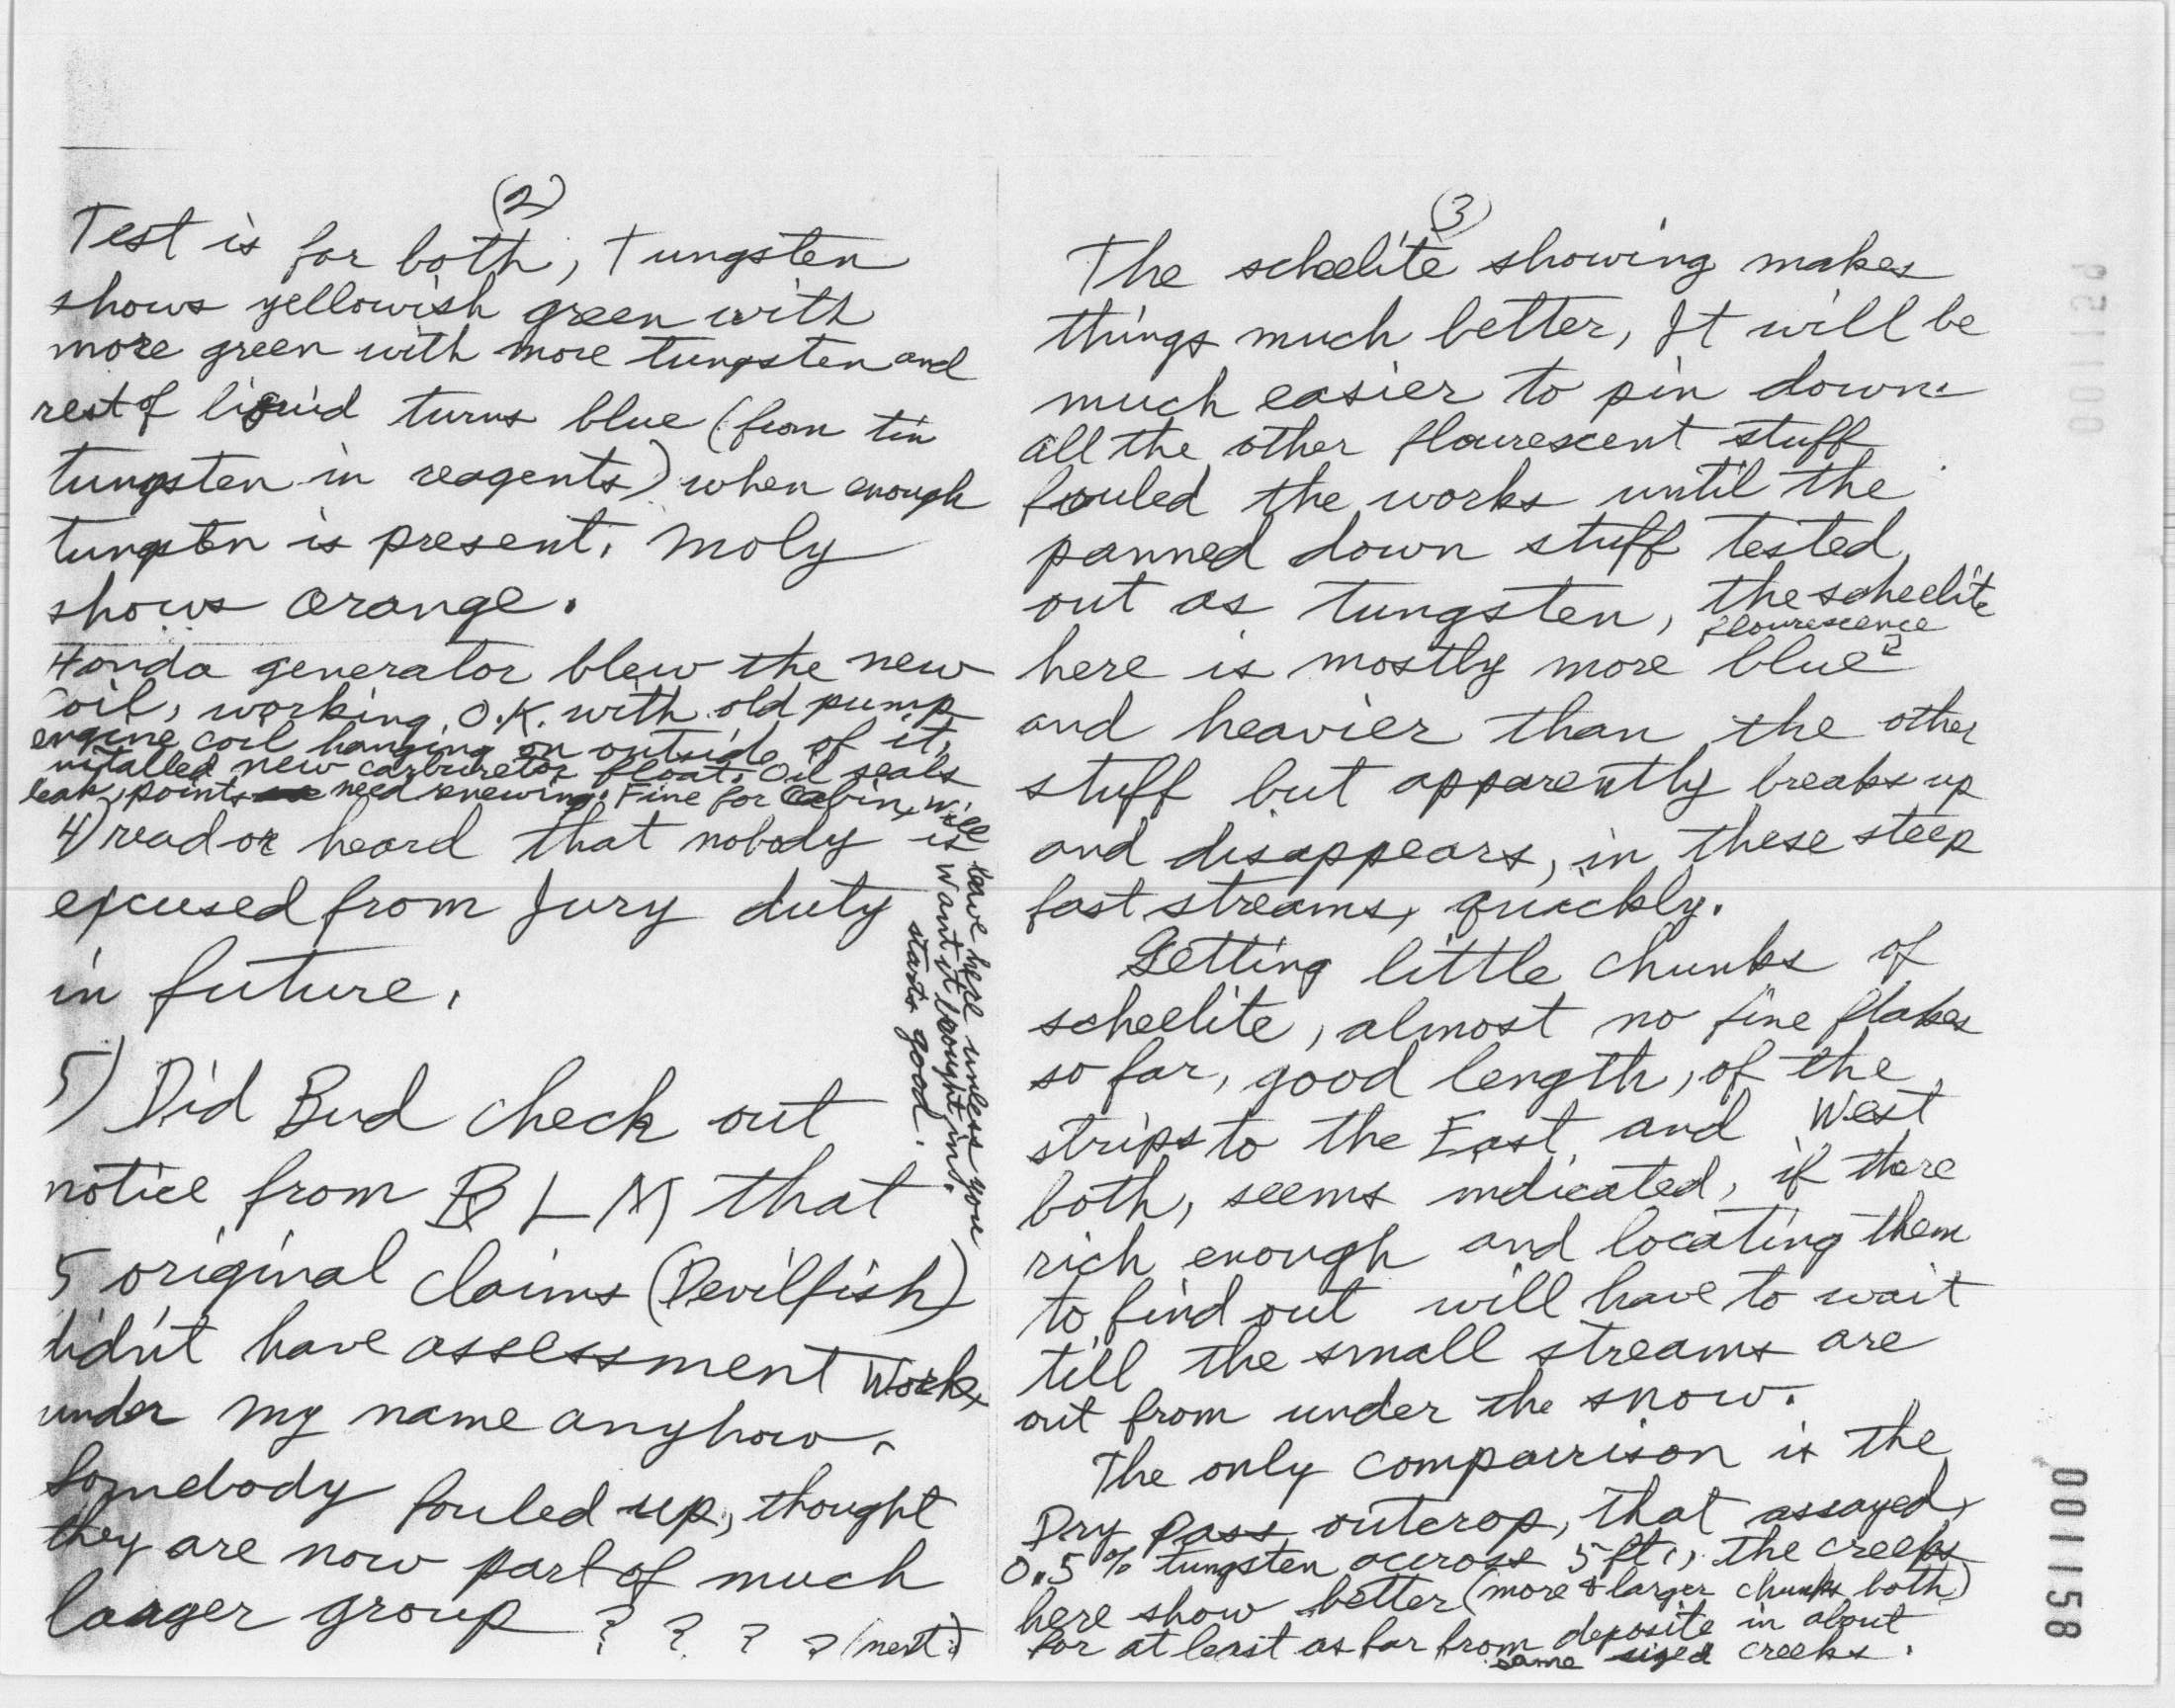 (2)
Test is for both, Tungsten
shows yellowish green with
more green with more tungsten and
rest of liquid turns blue (from tin
tungsten in reagents) when enough
tungstn is present. Moly
shows orange.
Honda generator blew the new
coil, working O.K. with old pump
engine coil hanging on outside of it,
nstalled new carburetor float. Oil seals
leak, points need renewing. Fine for Cabin, will
leave here unless you
want it brought in.
starts good.
4) read or heard that nobody is
excused from Jury duty
in future.
5) Did Bud check out
notice from BLM that
5 original claims (Devilfish)
didn't have assessment work,
under my name anyhow.
Somebody fouled up, thought
they are now part of much
larger group ? ? ? ? (next)
(3)
The scheelite showing makes
things much better, It will be
much easier to pin down.
all the other flourescent stuff
fouled the works until the
panned down stuff tested
out as tungsten, the scheelite
flourescence
here is mostly more blue
and heavier than the other
stuff but apparently breaks up
and disappears, in these steep
fast streams, quickly.
Getting little chunks of
scheelite, almost no fine flakes
so far, good length, of the
strips to the East and West
both, seems indicated, if there
rich enough and locating them
to find out will have to wait
till the small streams are
out from under the snow.
The only comparrison is the
Dry Pass outcrop, that assayed
0.5% tungsten accross 5 ft., the creeks
here show better (more & larger chunks both)
for at least as far from deposite in about
same sized creeks.
001158